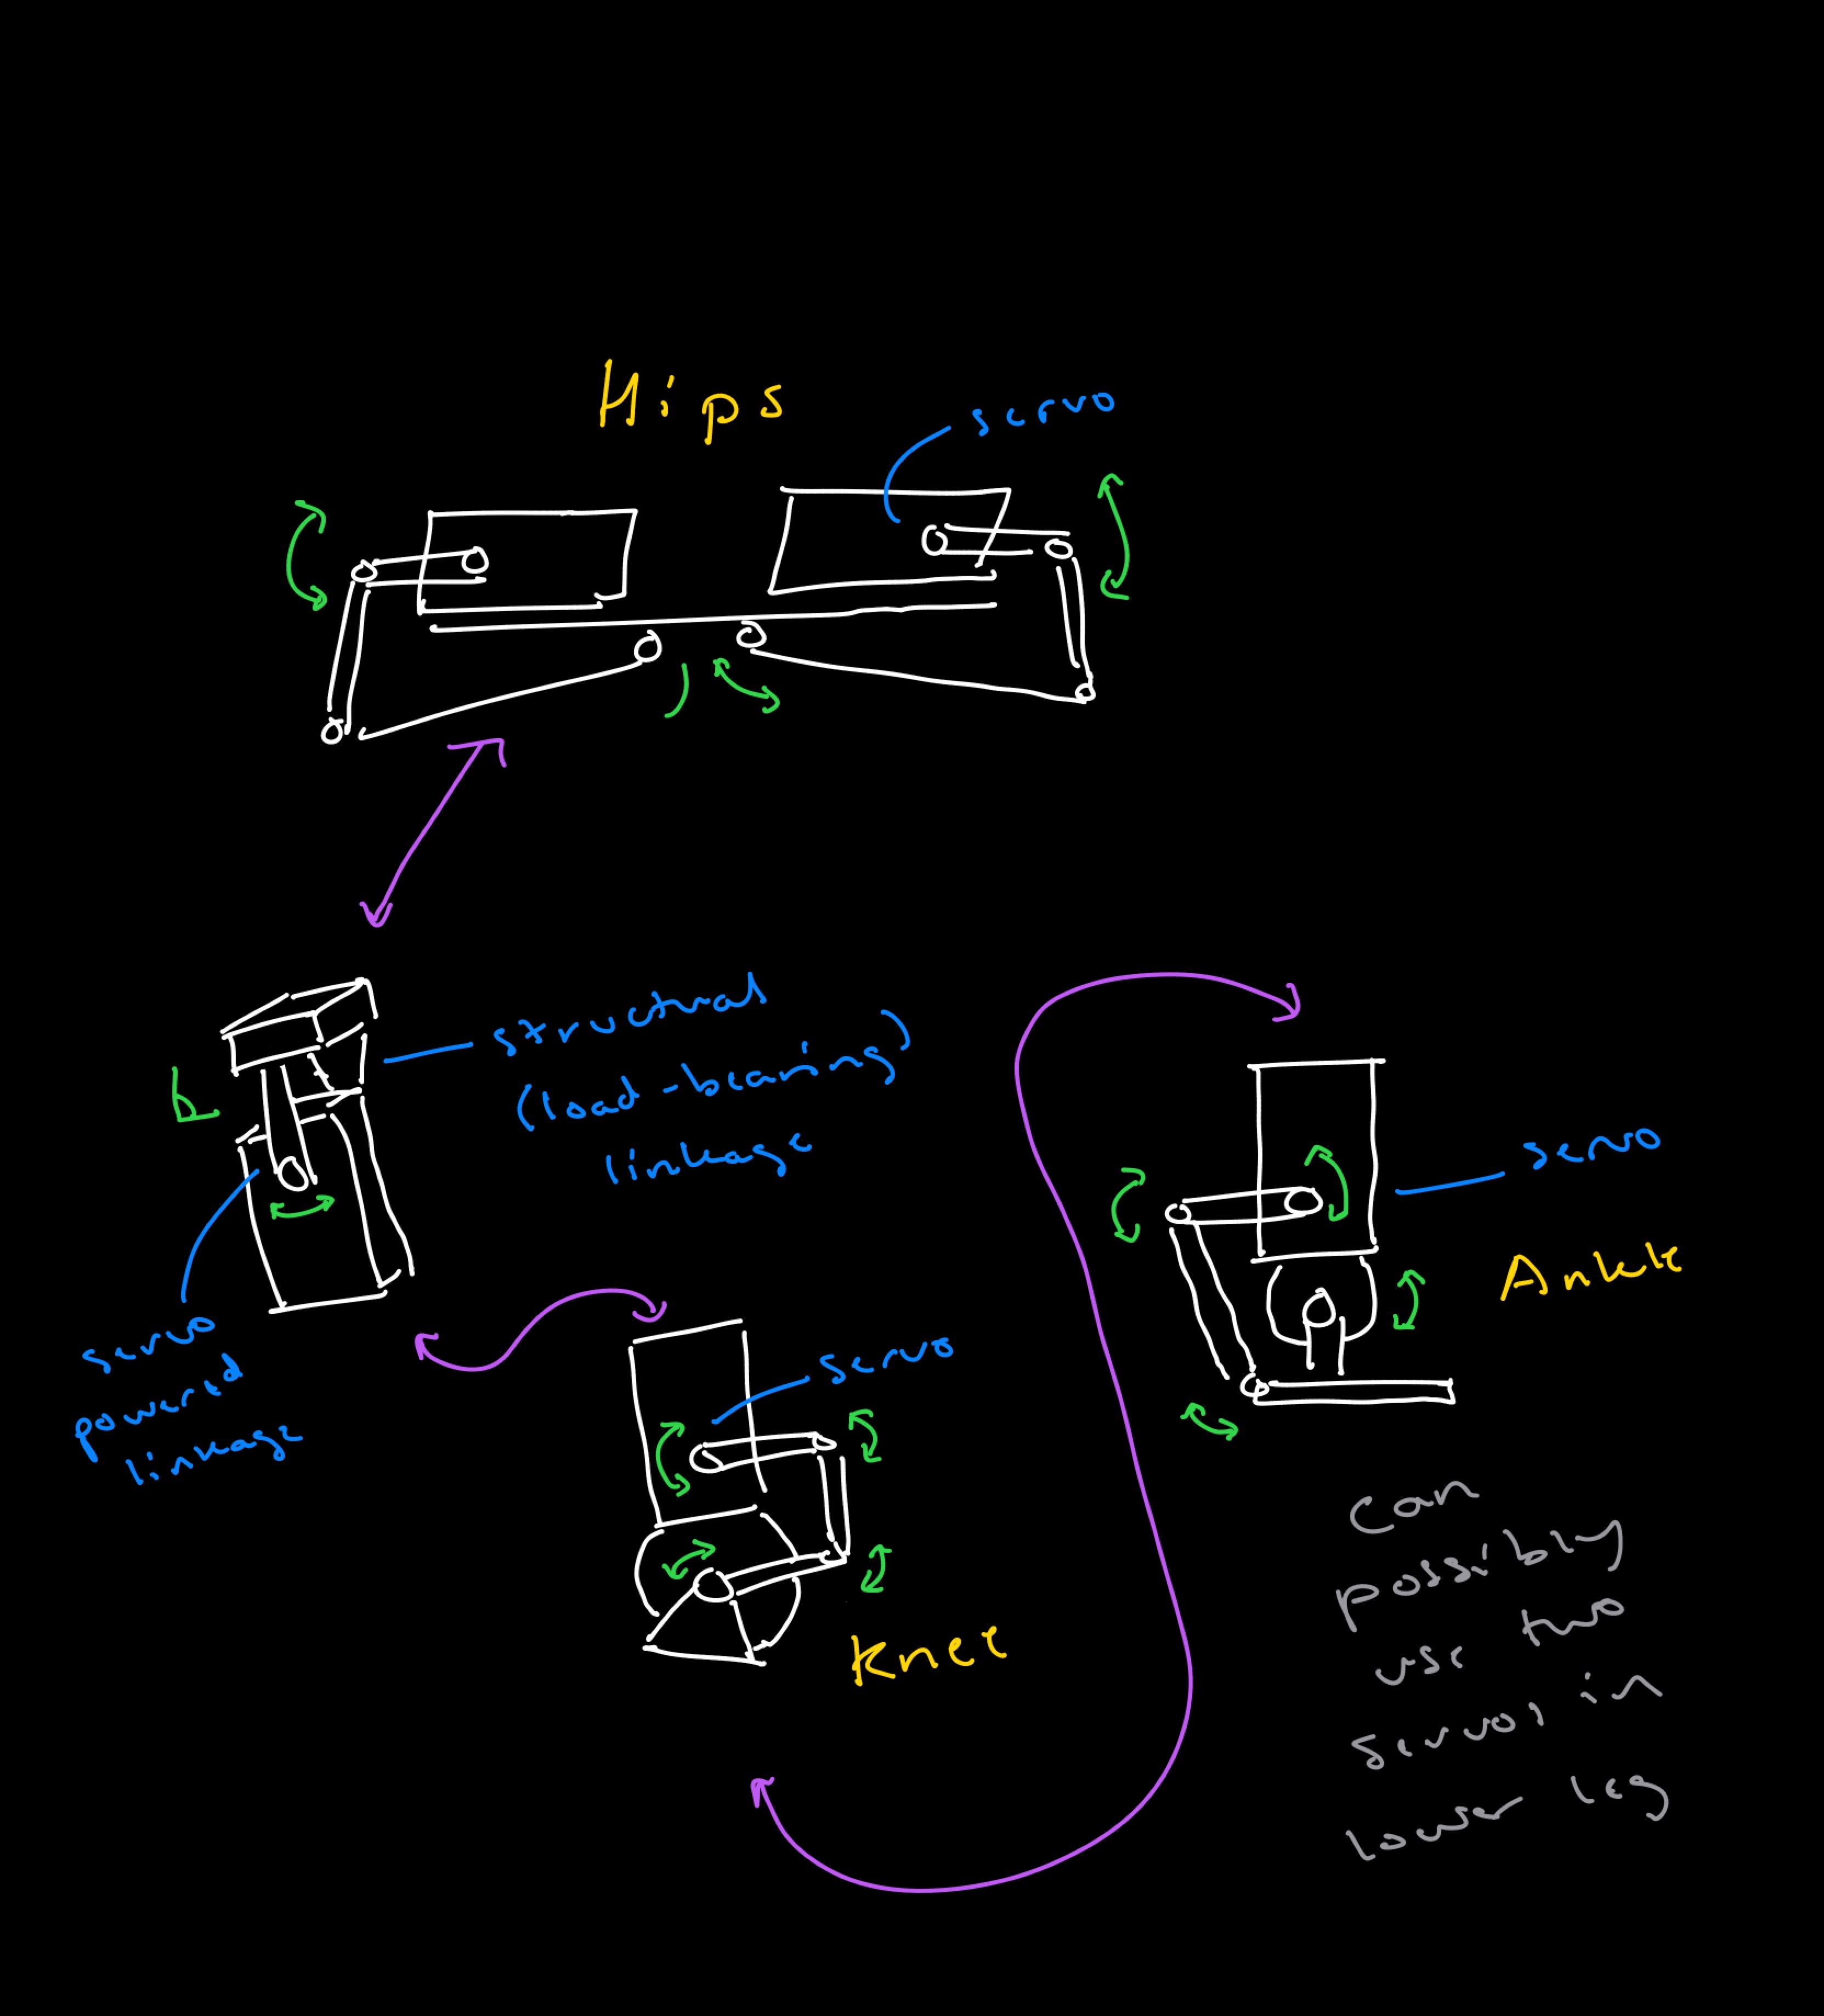 Hips
servo
structural
(load-bearing)
linkage
servo
powered
linkage
servo
Knee
servo
Ankle
Can
possibly
use two
servos in
lower leg